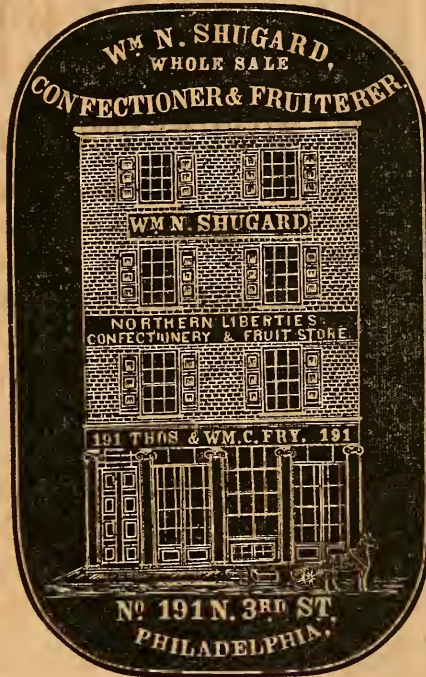 WM N. SHUGARD,
WHOLE SALE
CONFECTIONER & FRUITERER
WM N. SHUGARD
NORTHERN LIBERTIES
CONFECTIONERY & FRUIT STORE
191 THOS & WM. C. FRY. 191
No 191 N. 3RD ST.
PHILADELPHIA,